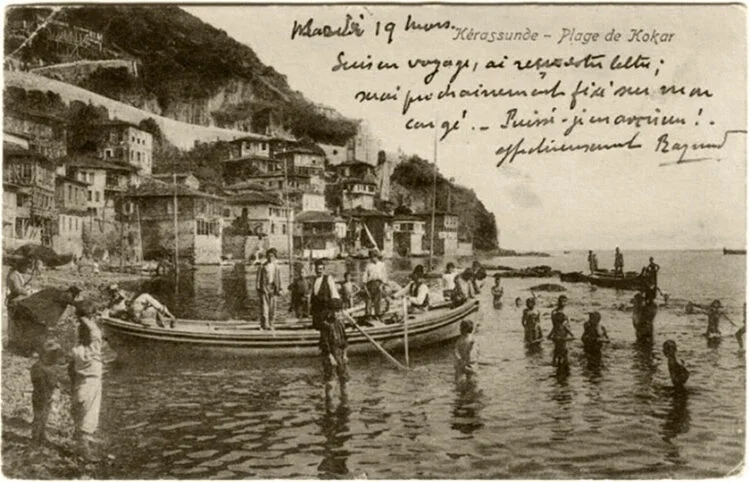 19 mars.
Kérassunde - Plage de Kokar
Suis en voyage, ai reçu votre lettre;
serai prochainement fixé sur mon
congé. - Puissé-je en avoir un!
affectueusement Raymond